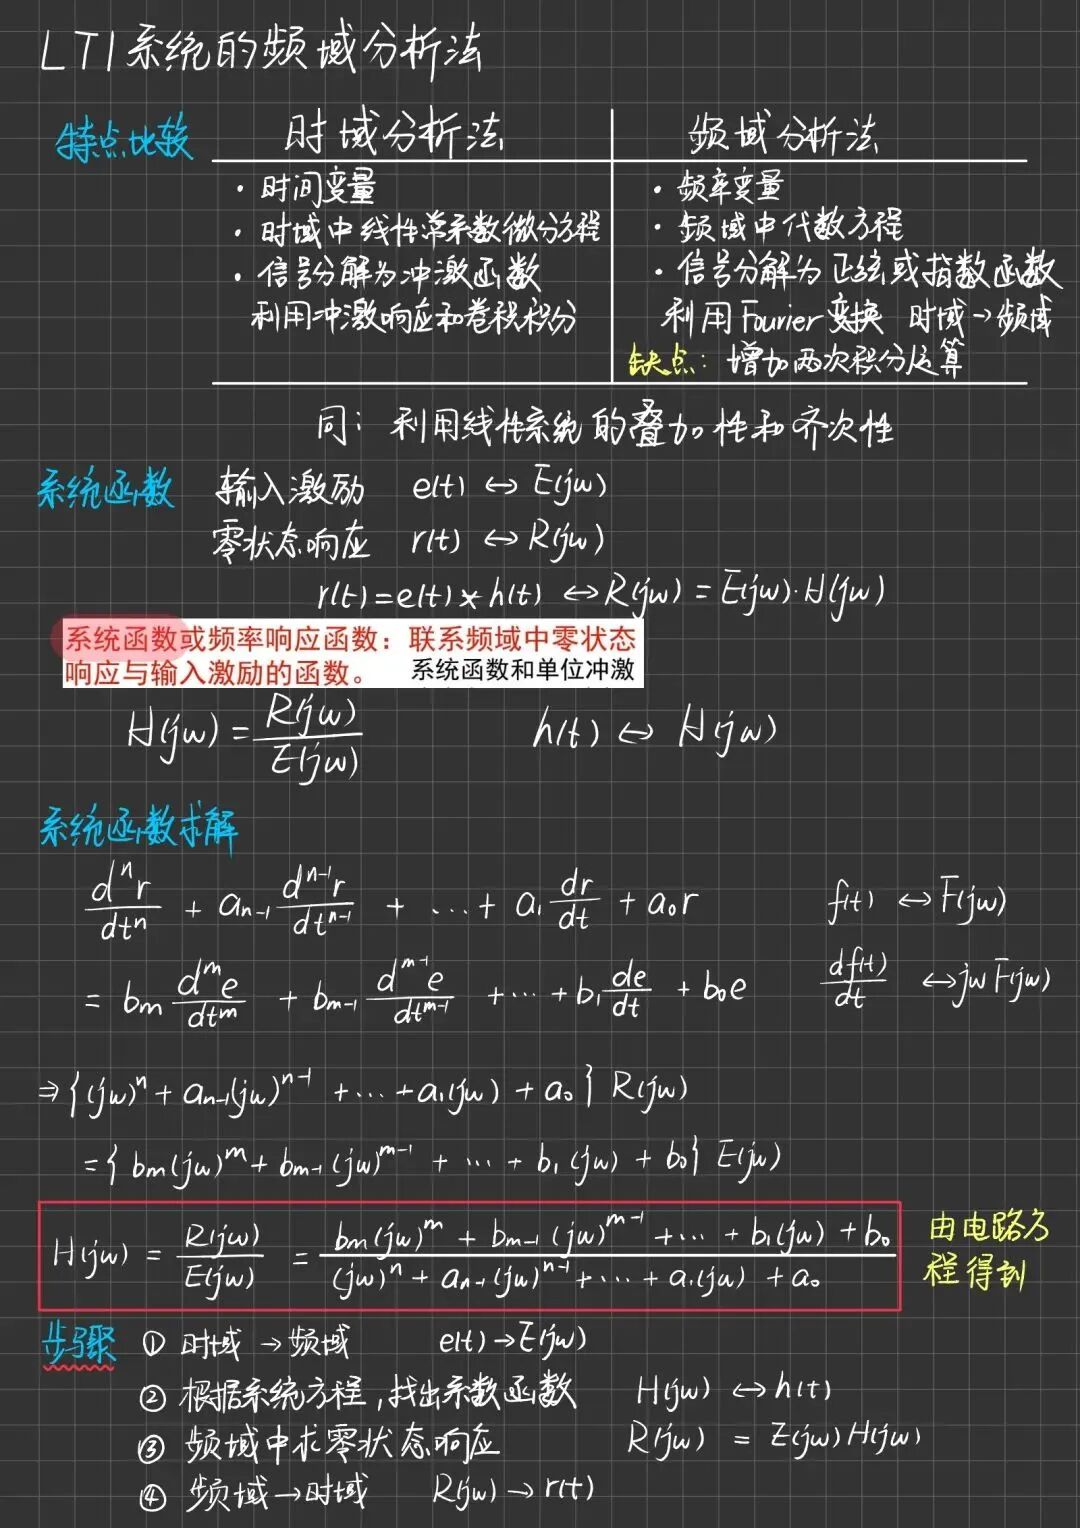 LTI系统的频域分析法
特点比较
时域分析法
· 时间变量
· 时域中线性常系数微分方程
· 信号分解为冲激函数
利用冲激响应和卷积积分
频域分析法
· 频率变量
· 频域中代数方程
· 信号分解为正弦或指数函数
利用Fourier变换 时域→频域
缺点：增加两次积分运算
同：利用线性系统的叠加性和齐次性
系统函数 输入激励 e(t) ↔ E(jw)
零状态响应 r(t) ↔ R(jw)
r(t)=e(t)*h(t) ↔ R(jw) = E(jw)·H(jw)
系统函数或频率响应函数：联系频域中零状态
响应与输入激励的函数。 系统函数和单位冲激
H(jw) = R(jw)/E(jw) h(t) ↔ H(jw)
系统函数求解
dⁿr/dtⁿ + aₙ₋₁ dⁿ⁻¹r/dtⁿ⁻¹ + … + a₁ dr/dt + a₀r f(t) ↔ F(jw)
= bₘ dᵐe/dtᵐ + bₘ₋₁ dᵐ⁻¹e/dtᵐ⁻¹ + … + b₁ de/dt + b₀e df(t)/dt ↔ jw F(jw)
⇒ {(jw)ⁿ + aₙ₋₁(jw)ⁿ⁻¹ + … + a₁(jw) + a₀} R(jw)
= {bₘ(jw)ᵐ + bₘ₋₁(jw)ᵐ⁻¹ + … + b₁(jw) + b₀} E(jw)
H(jw) = R(jw)/E(jw) = bₘ(jw)ᵐ + bₘ₋₁(jw)ᵐ⁻¹ + … + b₁(jw) + b₀ / (jw)ⁿ + aₙ₋₁(jw)ⁿ⁻¹ + … + a₁(jw) + a₀
由电路方
程得到
步骤 ① 时域→频域 e(t)→E(jw)
② 根据系统方程，找出系数函数 H(jw) ↔ h(t)
③ 频域中求零状态响应 R(jw) = E(jw)H(jw)
④ 频域→时域 R(jw)→r(t)